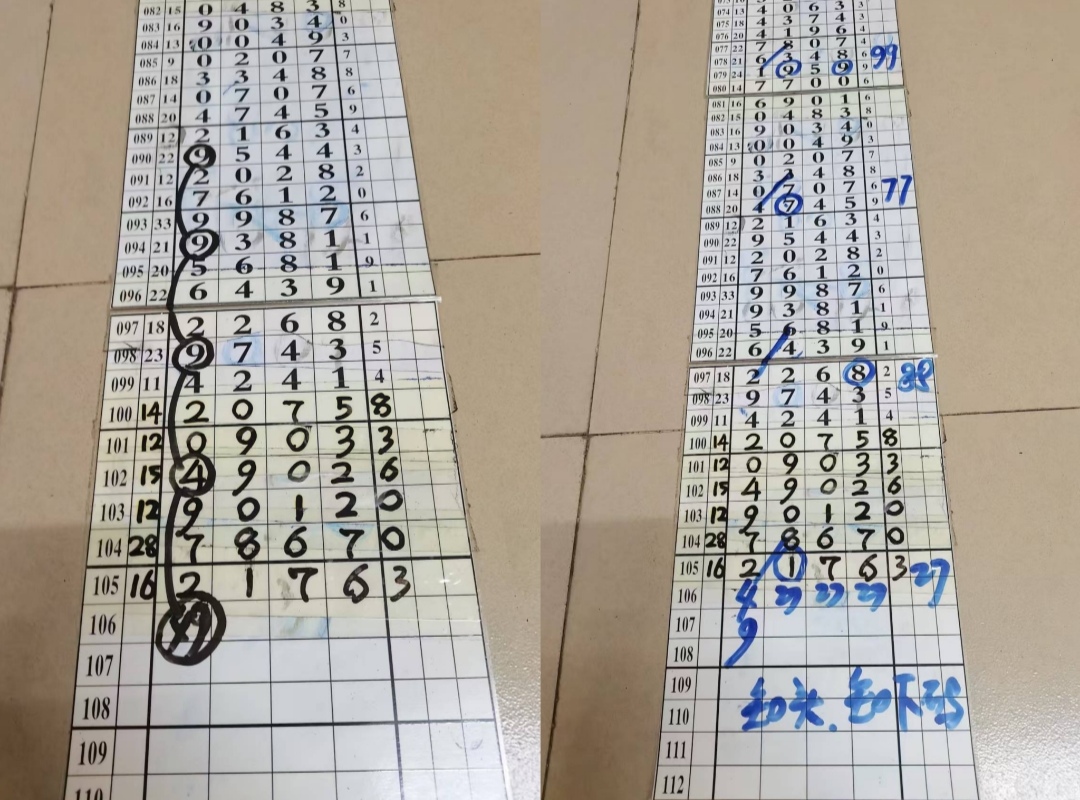 082 15 0 4 8 3 8
083 16 9 0 3 4 0
084 13 0 0 4 9 3
085 9 0 2 0 7 7
086 18 3 3 4 8 8
087 14 0 7 0 7 6
088 20 4 7 4 5 9
089 12 2 1 6 3 4
090 22 9 5 4 4 3
091 12 2 0 2 8 2
092 16 7 6 1 2 0
093 33 9 9 8 7 6
094 21 9 3 8 1 1
095 20 5 6 8 1 9
096 22 6 4 3 9 1
097 18 2 2 6 8 2
098 23 9 7 4 3 5
099 11 4 2 4 1 4
100 14 2 0 7 5 8
101 12 0 9 0 3 3
102 15 4 9 0 2 6
103 12 9 0 1 2 0
104 28 7 8 6 7 0
105 16 2 1 7 6 3
106 49
107
108
109
110
074 13
075 18 4 3 7 4 3
076 20 4 1 9 6 4
077 22 7 8 0 7 4
078 21 6 3 4 8 6
079 24 1 9 5 9 9 99
080 14 7 7 0 0 6
081 16 6 9 0 1 6
082 15 0 4 8 3 8
083 16 9 0 3 4 0
084 13 0 0 4 9 3
085 9 0 2 0 7 7
086 18 3 3 4 8 8
087 14 0 7 0 7 6 77
088 20 4 7 4 5 9
089 12 2 1 6 3 4
090 22 9 5 4 4 3
091 12 2 0 2 8 2
092 16 7 6 1 2 0
093 33 9 9 8 7 6
094 21 9 3 8 1 1
095 20 5 6 8 1 9
096 22 6 4 3 9 1
097 18 2 2 6 8 2 88
098 23 9 7 4 3 5
099 11 4 2 4 1 4
100 14 2 0 7 5 8
101 12 0 9 0 3 3
102 15 4 9 0 2 6
103 12 9 0 1 2 0
104 28 7 8 6 7 0
105 16 2 1 7 6 3 27
106 4 27 27 27
107 9
108
109
110
111
112